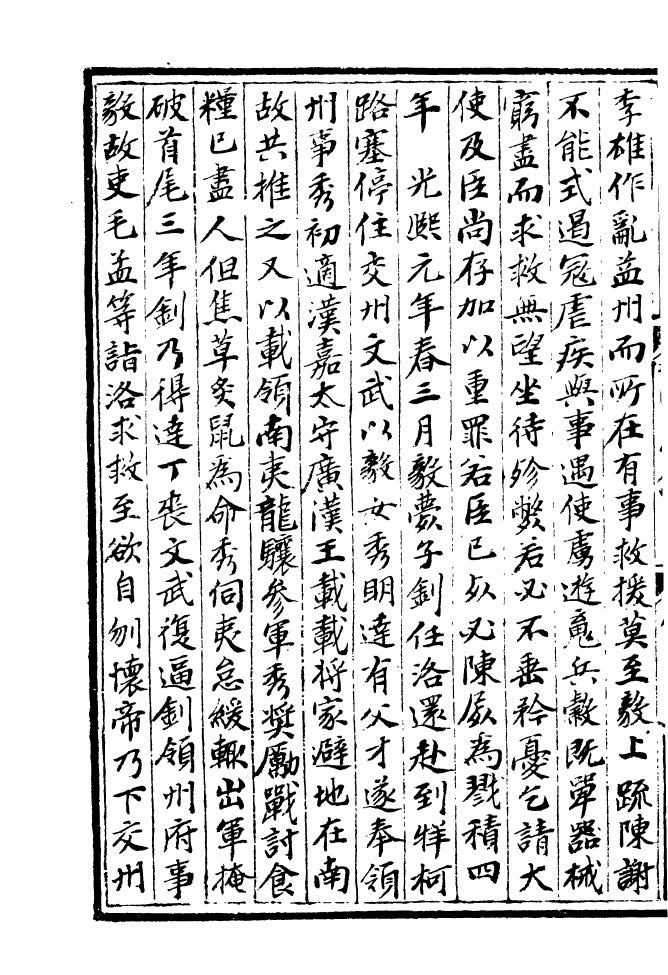 李雄作亂益州而所在有事救援莫至毅上疏陳謝
不能式遏寇虐疾與事遇使虜遊魂兵穀既單器械
窮盡而求救無望坐待殄斃若必不垂矜憂乞請大
使及臣尚存加以重罪若臣已死必陳屍為戮積四
年　光熙元年春三月毅薨子釗任洛還赴到牂柯
路塞停住交州文武以毅女秀明達有父才遂奉領
州事秀初適漢嘉太守廣漢王載載將家避地在南
故共推之又以載領南夷龍驤參軍秀奬勵戰討食
糧已盡人但焦草炙鼠為命秀伺夷怠緩輒出軍掩
破首尾三年釗乃得達丁喪文武復逼釗領州府事
毅故吏毛孟等詣洛求救至欲自刎懷帝乃下交州